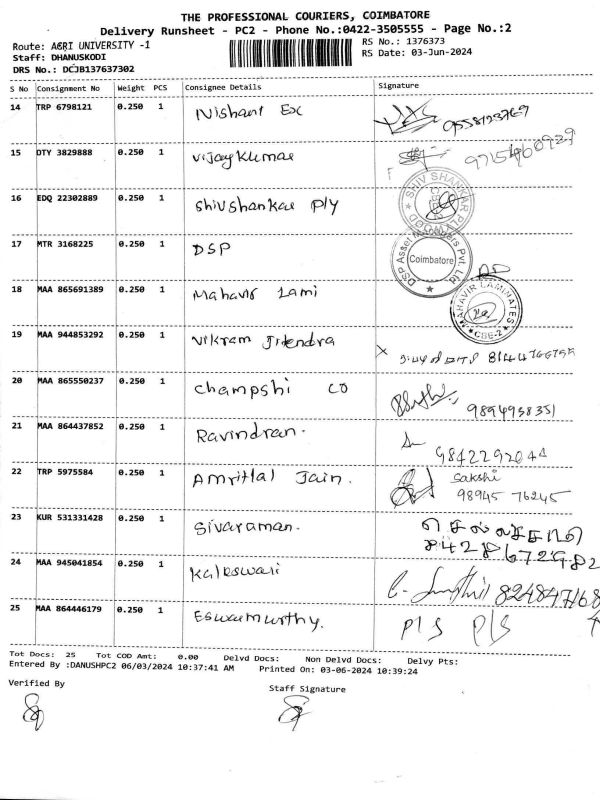 THE PROFESSIONAL COURIERS, COIMBATORE
Delivery Runsheet - PC2 - Phone No.:0422-3505555 - Page No.:2
Route: AGRI UNIVERSITY -1
RS No.: 1376373
Staff: DHANUSKODI
RS Date: 03-Jun-2024
DRS No.: DCJB137637302
S No Consignment No Weight PCS Consignee Details Signature
14 TRP 6798121 0.250 1 Nishant Ex
15 DTY 3829888 0.250 1 Vijaykumar
16 EDQ 22302889 0.250 1 Shivshankar Ply
SHIV SHANKAR PLY
17 MTR 3168225 0.250 1 DSP
DSP Asset Managers Pvt. Ltd
Coimbatore
18 MAA 865691389 0.250 1 Mahavir Lami
MAHAVIR LAMINATES
CBE-2
19 MAA 944853292 0.250 1 Vikram Jitendra
20 MAA 865550237 0.250 1 Champshi CO 9894958351
21 MAA 864437852 0.250 1 Ravindran. 9842292044
22 TRP 5975584 0.250 1 Amritlal Jain. Sakshi
98945 76245
23 KUR 531331428 0.250 1 Sivaraman.
8428672982
24 MAA 945041854 0.250 1 Kaleswari
25 MAA 864446179 0.250 1 Eswarmurthy. P/S P/S
Tot Docs: 25 Tot COD Amt: 0.00 Delvd Docs: Non Delvd Docs: Delvy Pts:
Entered By :DANUSHPC2 06/03/2024 10:37:41 AM Printed On: 03-06-2024 10:39:24
Verified By Staff Signature